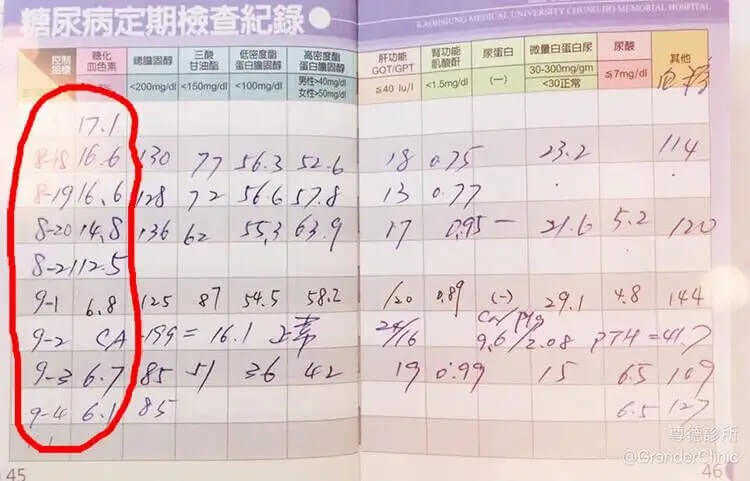 糖尿病定期檢查紀錄
KAOHSIUNG MEDICAL UNIVERSITY CHUNG-HO MEMORIAL HOSPITAL
控制指標 糖化血色素 總膽固醇 三酸甘油酯 低密度脂蛋白膽固醇 高密度脂蛋白膽固醇 肝功能GOT/GPT 腎功能肌酸酐 尿蛋白 微量白蛋白尿 尿酸 其他
<200mg/dl <150mg/dl <100mg/dl 男性>40mg/dl 女性>50mg/dl ≦40 Iu/l <1.5mg/dl (—) 30-300mg/gm <30正常 ≦7mg/dl
17.1
8-18 16.6 130 77 56.3 52.6 18 0.75 23.2 114
8-19 16.6 128 72 56.6 57.8 13 0.77
8-20 14.8 136 62 55.3 63.9 17 0.95 — 21.6 5.2 120
8-21 12.5
9-1 6.8 125 87 54.5 58.2 /20 0.89 (-) 29.1 4.8 144
9-2 CA-199 = 16.1 正常 24/16 Ca/ 9.6/2.08 PTH = 41.7
9-3 6.7 85 51 36 42 19 0.99 15 6.5 109
9-4 6.1 85 6.5 127
45
46
尊德診所
@GranderClinic